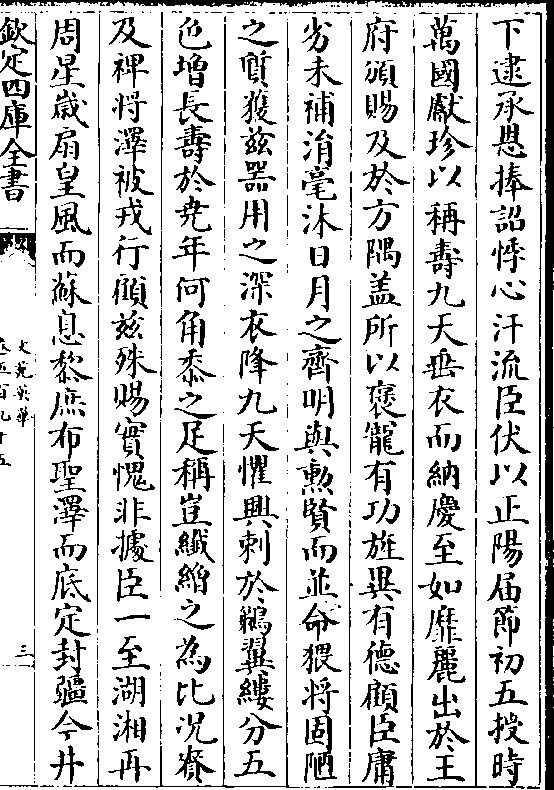 下逮承恩捧詔悸心汗流臣伏以正陽届節初五授時
萬國獻珍以稱壽九天垂衣而納慶至如靡麗出於王
府頒賜及於方隅盖所以褒寵有功旌異有德顧臣庸
劣未補涓毫沐日月之齊明與勲賢而並命猥將固陋
之質獲兹器用之深衣降九天懼興刺於鵜翼縷分五
色增長壽於堯年何角黍之足稱豈纎縎之為比况賚
及裨將澤被戎行顧兹殊賜實愧非據臣一至湖湘再
周星歲扇皇風而蘇息黎庶布聖澤而底定封疆今井
欽定四庫全書
文苑英華
卷五百九十五
三